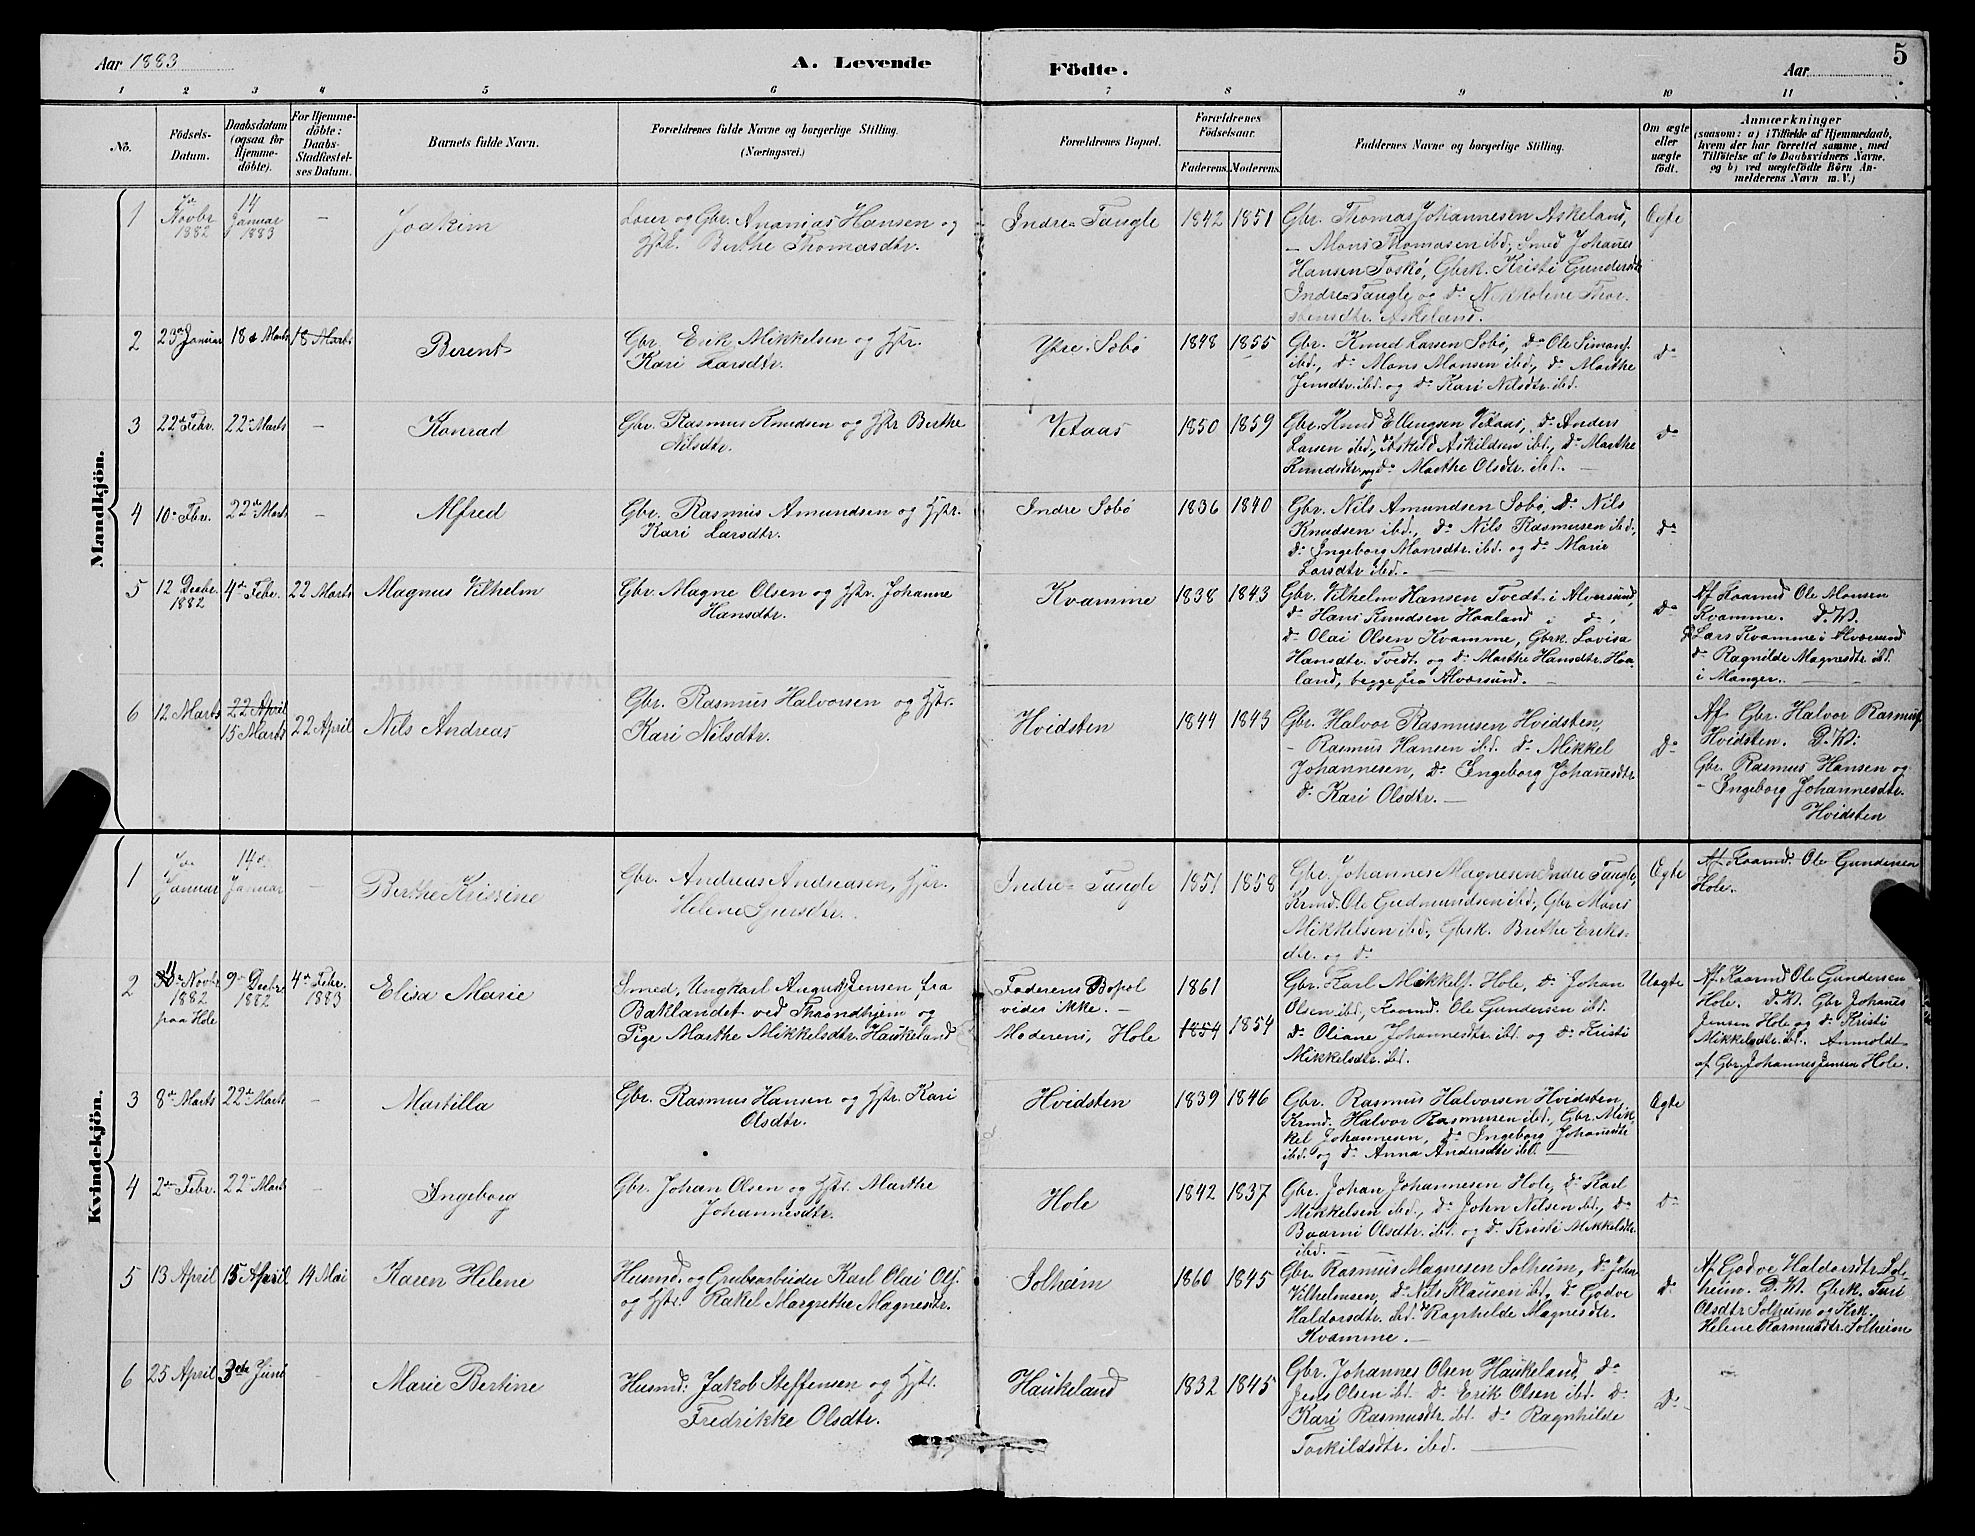 Aar 1883
A. Levende
Födte.
Aar
5
1 2 3 4 5 6 7 8 9 10 11
No.
Födsels-
Datum.
Daabsdatum
(ogsaa for
Hjemme-
döbte).
For Hjemme-
döbte:
Daabs-
Stadfæstel-
ses Datum.
Barnets fulde Navn.
Forældrenes fulde Navne og borgerlige Stilling.
(Næringsvei.)
Forældrenes Bopæl.
Forældrenes
Födselsaar.
Faderens. Moderens.
Faddernes Navne og borgerlige Stilling.
Om ægte
eller
uægte
födt.
Anmærkninger
(saasom: a) i Tilfælde af Hjemmedaab,
hvem der har forrettet samme, med
Tilföielse af to Daabsvidners Navne,
og b) ved uægtefödte Börn An-
melderens Navn m. V.)
Mandkjön.
1
Novbr
1882
14
Januar
1883
–
Joakim
Loser og Gbr. Ananias Hansen og
Hstr. Berthe Thomasdtr.
Indre Tangle
1842 1851
Gbr. Thomas Johannesen Askeland,
– Mons Thomasen ibd, Smed Johanes
Hansen Toskö, Gbrk. Kristi Gundersdtr
Indre Tangle og do Nikkoline Thor-
stensdtr. Askeland.
Ægte
2
23 Januar
18 Marts
18 Marts
Berent
Gbr. Erik Mikkelsen og Hstr.
Kari Larsdtr.
Ytre Sobö
1848 1855
Gbr. Knud Larsen Sobö, do Ole Simons.
ibd., do Mons Monsen ibd, do Marthe
Jensdtr. ibd. og do Kari Nilsdtr. ibd.
do
3
22 Febr.
22 Marts
–
Konrad
Gbr. Rasmus Knudsen og Hstr Berthe
Nilsdtr.
Vetaas
1850 1859
Gbr. Knud Ellingsen Vetaas, do Anders
Larsen ibd., Askild Askildsen ibd., do Marthe
Knudsdtr. og do Marthe Olsdtr. ibd. –
do
4
10 Febr.
22 Marts
–
Alfred
Gbr. Rasmus Amundsen og Hstr.
Kari Larsdtr.
Indre Sobö
1836 1840
Gbr. Nils Amundsen Sobö, do Nils
Knudsen ibd., do Nils Rasmusen ibd.,
do Ingeborg Monsdtr. ibd. og do Marie
Larsdtr ibd. –
do
5
12 Decbr.
1882
4 Febr.
22 Marts
Magnus Vilhelm
Gbr. Magne Olsen og Hstr. Johanne
Hansdtr.
Kvamme
1838 1843
Gbr. Vilhelm Hansen Tvedt i Alversund,
do Hans Knudsen Haaland i do,
do Olai Olsen Kvamme, Gbrk. Lovisa
Hansdtr. Tvedt. og do Marthe Hansdtr. Haa-
land, begge fra Alversund. –
do
Af Kaarmd Ole Monsen
Kvamme. D. V.
Lars Kvamme i Alversund
do Ragnilde Magnesdtr. ibd.
i Manger. –
6
12 Marts
22 April
15 Marts
22 April
Nils Andreas
Gbr. Rasmus Halvorsen og Hstr.
Kari Nilsdtr.
Hvidsten
1844 1843
Gbr. Halvor Rasmusen Hvidsten,
– Rasmus Hansen ibd. do Mikkel
Johannesen, do Ingeborg Johanesdtr.
do Kari Olsdtr. –
do
Af Gbr. Halvor Rasmus.
Hvidsten. D. V.:
Gbr. Rasmus Hansen og
– Ingeborg Johannesdtr.
Hvidsten
Kvindekjön.
1
Januar
14
Januar
–
Berthe Kristine
Gbr. Andreas Andreasen, Hstr.
Helene
Indre Tangle
1851 1858
Gbr. Johannes Magnesen Indre Tangle,
Krmd. Ole Gudmundsen ibd., Gbr Mons
Mikkelsen ibd., Gbrk. Brethe Eriks-
dtr. og do
Ægte
Af Kaarmd. Ole Gundersen
Hole.
2
Novbr
1882
paa Hole
9 Decbr
1882
4 Febr.
1883
Elisa Marie
Smed, Ungkarl August Jensen, fra
Baklandet ved Throndhjem og
Pige Marthe Mikkelsdtr. Haukeland
Faderens Bopæl
vides ikke. –
Moderens, Hole
1861
1854 1854
Gbr. Karl Mikkels. Hole, do Johan
Olsen ibd., Kaarmd. Ole Gundersen ibd.
do Oliane Johannesdtr. ibd. og do Kristi
Mikkelsdtr. ibd.
Uægte
Af Kaarmd Ole Gundersen
Hole. D. V. Gbr Johanes
Jensen Hole og do Kristi
Mikkelsdtr. ibd. Anmeldt
af Gbr. Johannes Jensen Hole.
3
8 Marts
22 Marts
–
Martilla
Gbr. Rasmus Hansen og Hstr. Kari
Olsdtr.
Hvidsten
1839 1846
Gbr. Rasmus Halvorsen Hvidsten,
Krmd. Halvor Rasmusen ibd., Gbr. Mik-
kel Johannesen, do Ingeborg Johanesdtr
ibd. og do Anna Andersdtr ibd. –
Ægte
4
2 Febr.
22 Marts
–
Ingeborg
Gbr. Johan Olsen og Hstr. Marthe
Johannesdtr.
Hole
1842 1837
Gbr. Johan Johannesen Hole, do Karl
Mikkelsen ibd., do John Nilsen ibd., do
Baarni Olsdtr. ibd. og do Kristi Mikkelsdtr.
ibd.
do
5
13 April
15 April
14 Mai
Karen Helene
Husmd. og Grubearbeider Karl Olai Ols.
og Hstr. Rakel Margrethe Magnesdtr.
Solheim
1860 1845
Gbr. Rasmus Magnesen Solheim, do John
Vilhelmsen, do Nils Klausen ibd., do Godve
Haldorsdtr. ibd. do Ragnhilde Magnesdtr.
Kvamme. –
do
Af Godve Haldorsdtr. Sol-
heim. D. V. Gbrk. Turi
Olsdtr Solheim og Krk.
Helene Rasmusdtr. Solheim
6
25 April
3 Juni
–
Marie Bertine
Husmd: Jakob Steffensen og Hstr.
Fredrikke Olsdtr.
Haukeland
1832 1845
Gbr. Johannes Olsen Haukeland, do
Jens Olsen ibd. do Erik Olsen ibd. do
Kari Rasmusdtr. ibd. do Ragnhilde
Torkildsdtr. ibd.
do
–